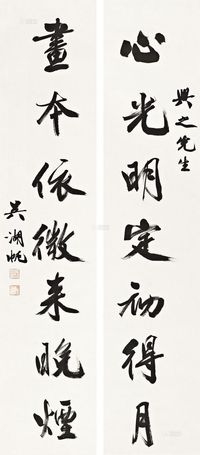 興之先生
心光明定初得月
畫本依微未晚煙
吳湖帆